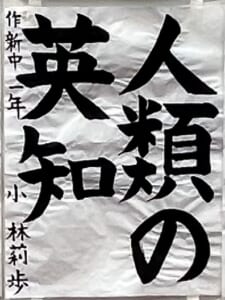 人類の
英知
作新中 一年
小林莉歩